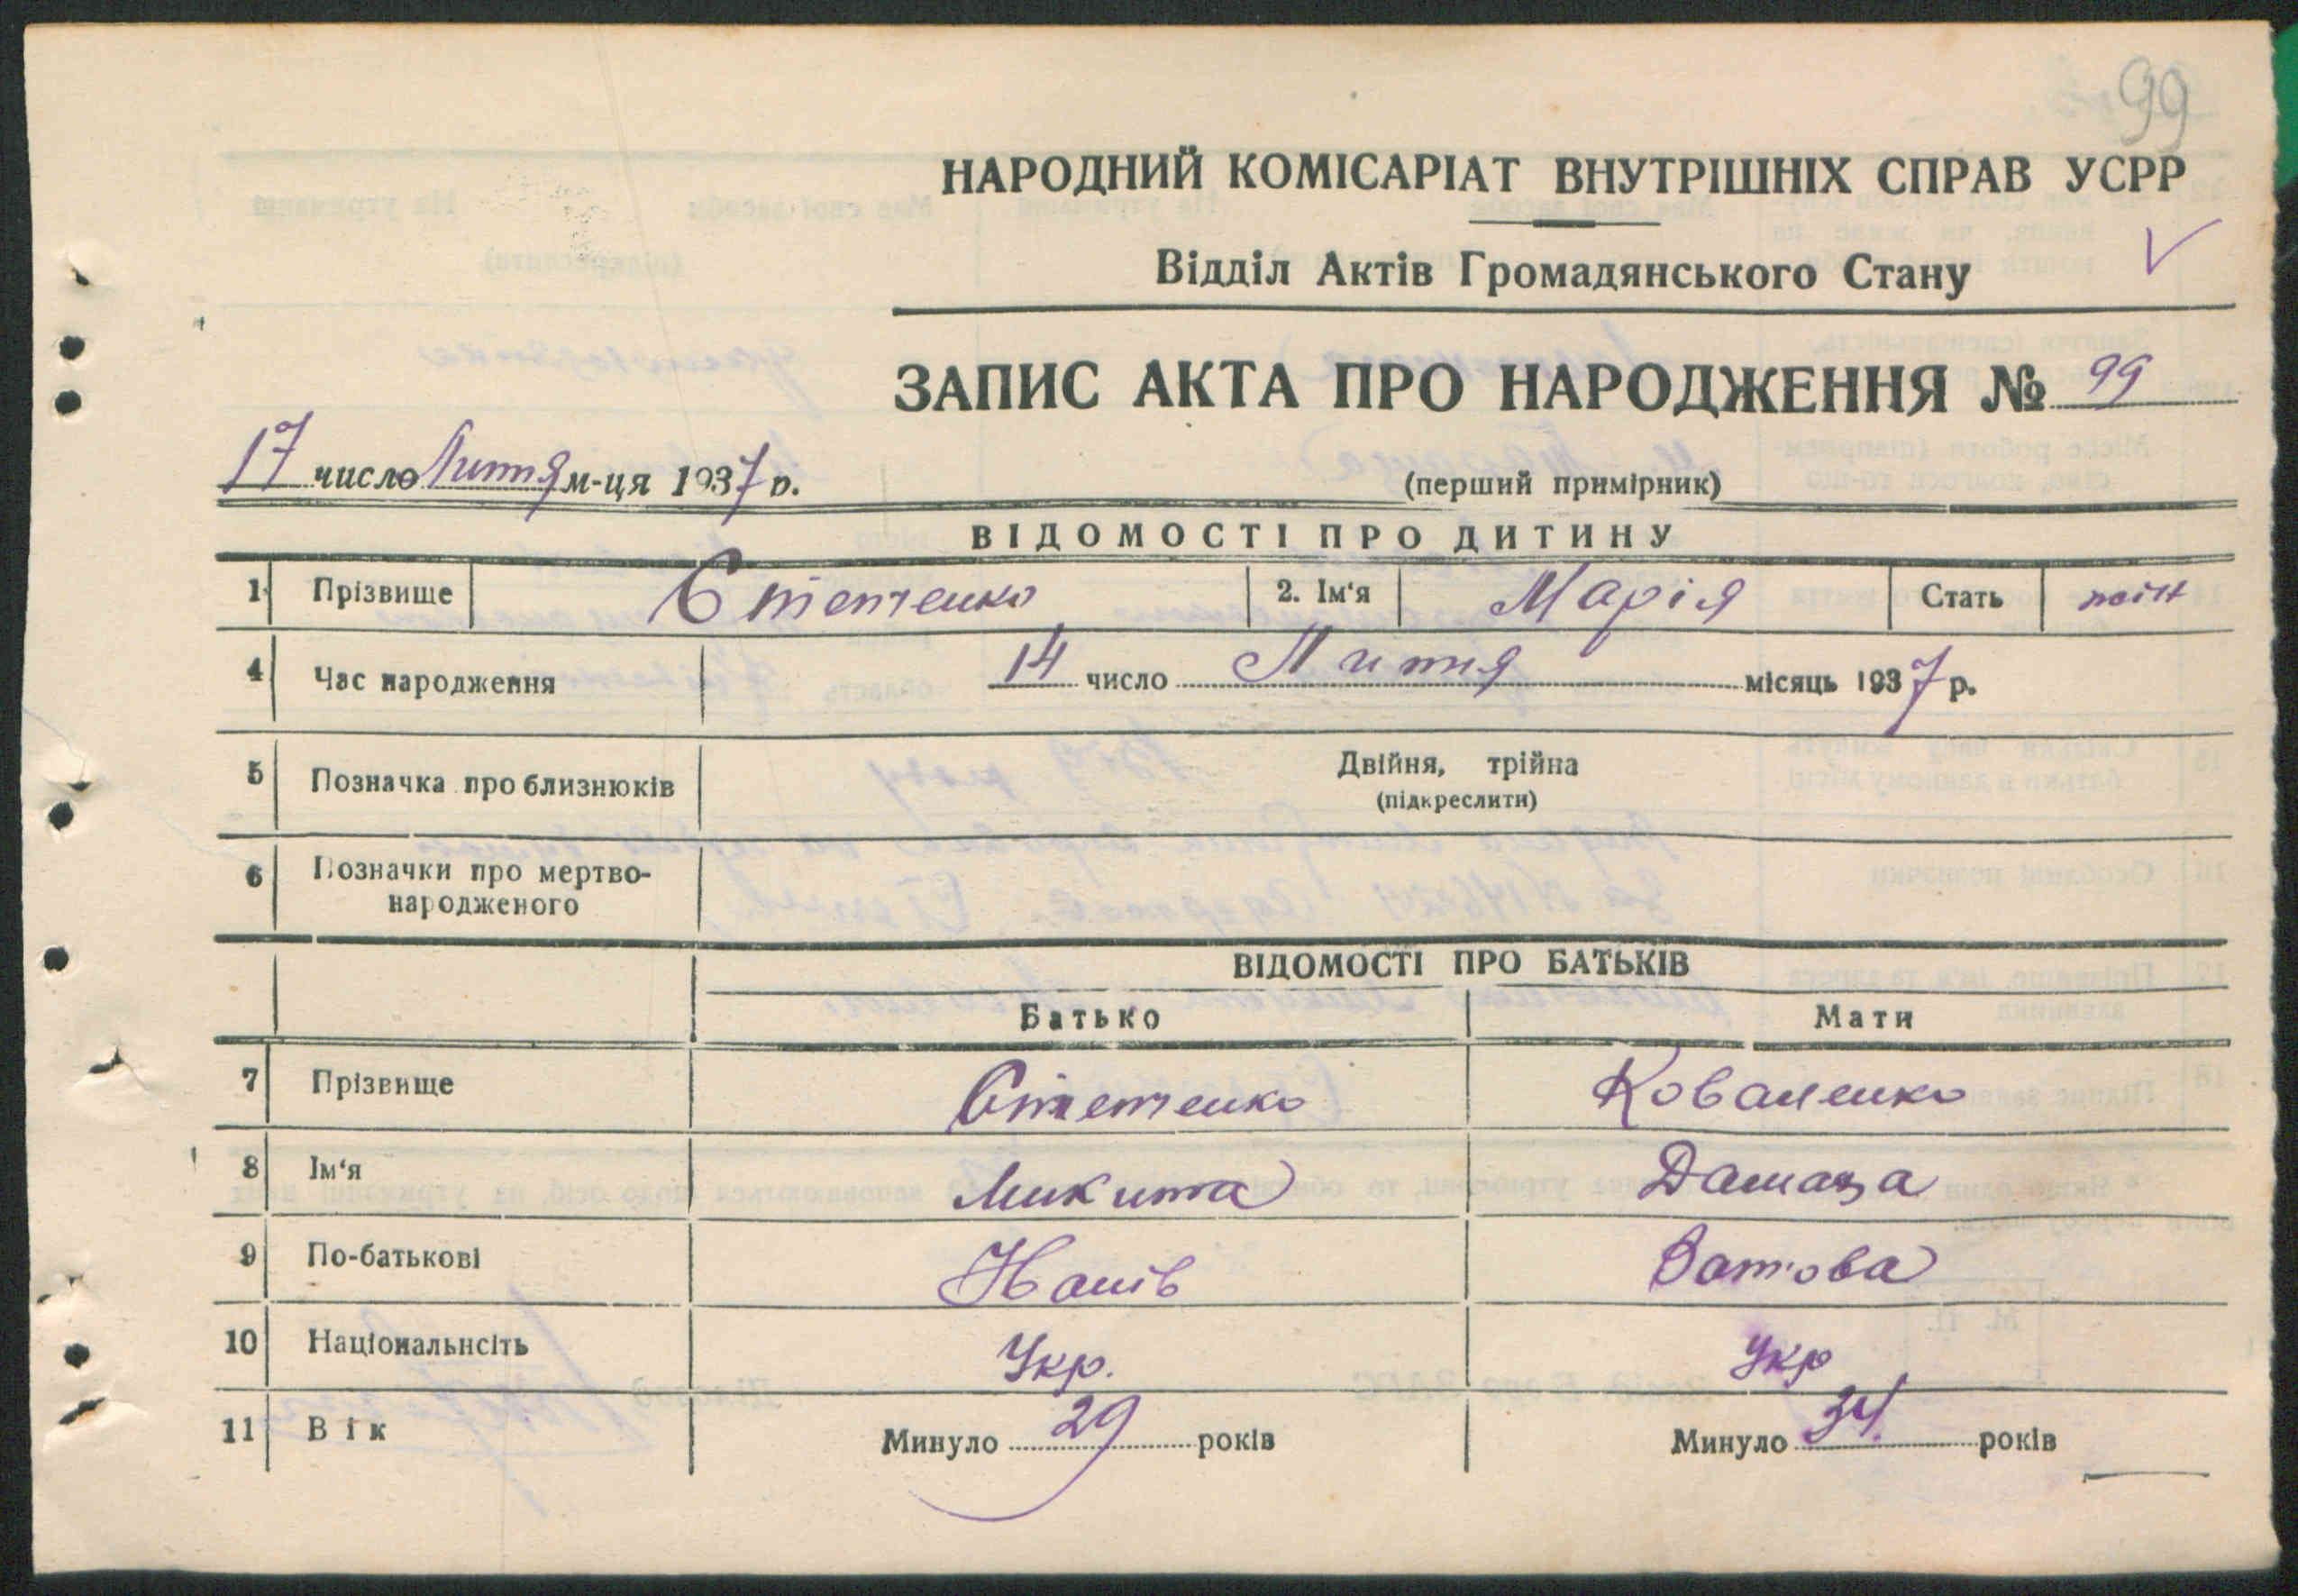 99
НАРОДНИЙ КОМІСАРІАТ ВНУТРІШНІХ СПРАВ УСРР
Відділ Актів Громадянського Стану
ЗАПИС АКТА ПРО НАРОДЖЕННЯ № 99
17 число Липня м-ця 1937 р.
(перший примірник)
ВІДОМОСТІ ПРО ДИТИНУ
1 Прізвище Стетенко 2. Ім'я Марія Стать
4 Час народження 14 число Липня місяць 1937 р.
5 Позначка про близнюків Двійня, трійна
(підкреслити)
6 Позначки про мертво-
народженого
ВІДОМОСТІ ПРО БАТЬКІВ
Батько Мати
7 Прізвище Стетенко Коваленко
8 Ім'я Микита
9 По-батькові
10 Національнсіть Укр. Укр
11 Вік Минуло 29 років Минуло 34 років